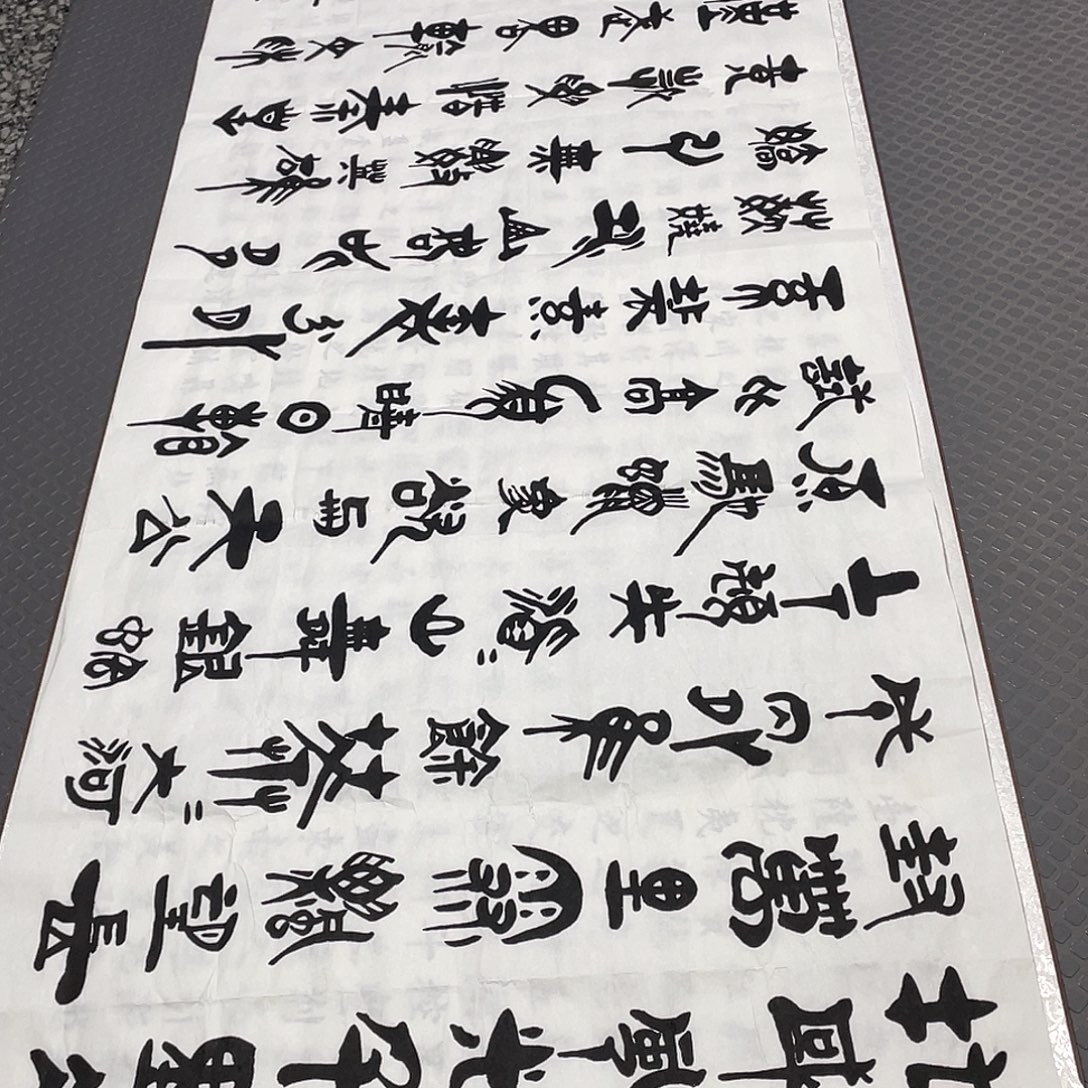 北國風光千里冰
封萬里雪飄望長
城内外惟餘莽=大河
上下頓失滔=山舞銀蛇
原馳蠟象欲與天公
試比高須晴日看
紅裝素裹分外
妖嬈江山如此多
嬌引無數英雄
競折腰惜秦皇
漢武略輸文采